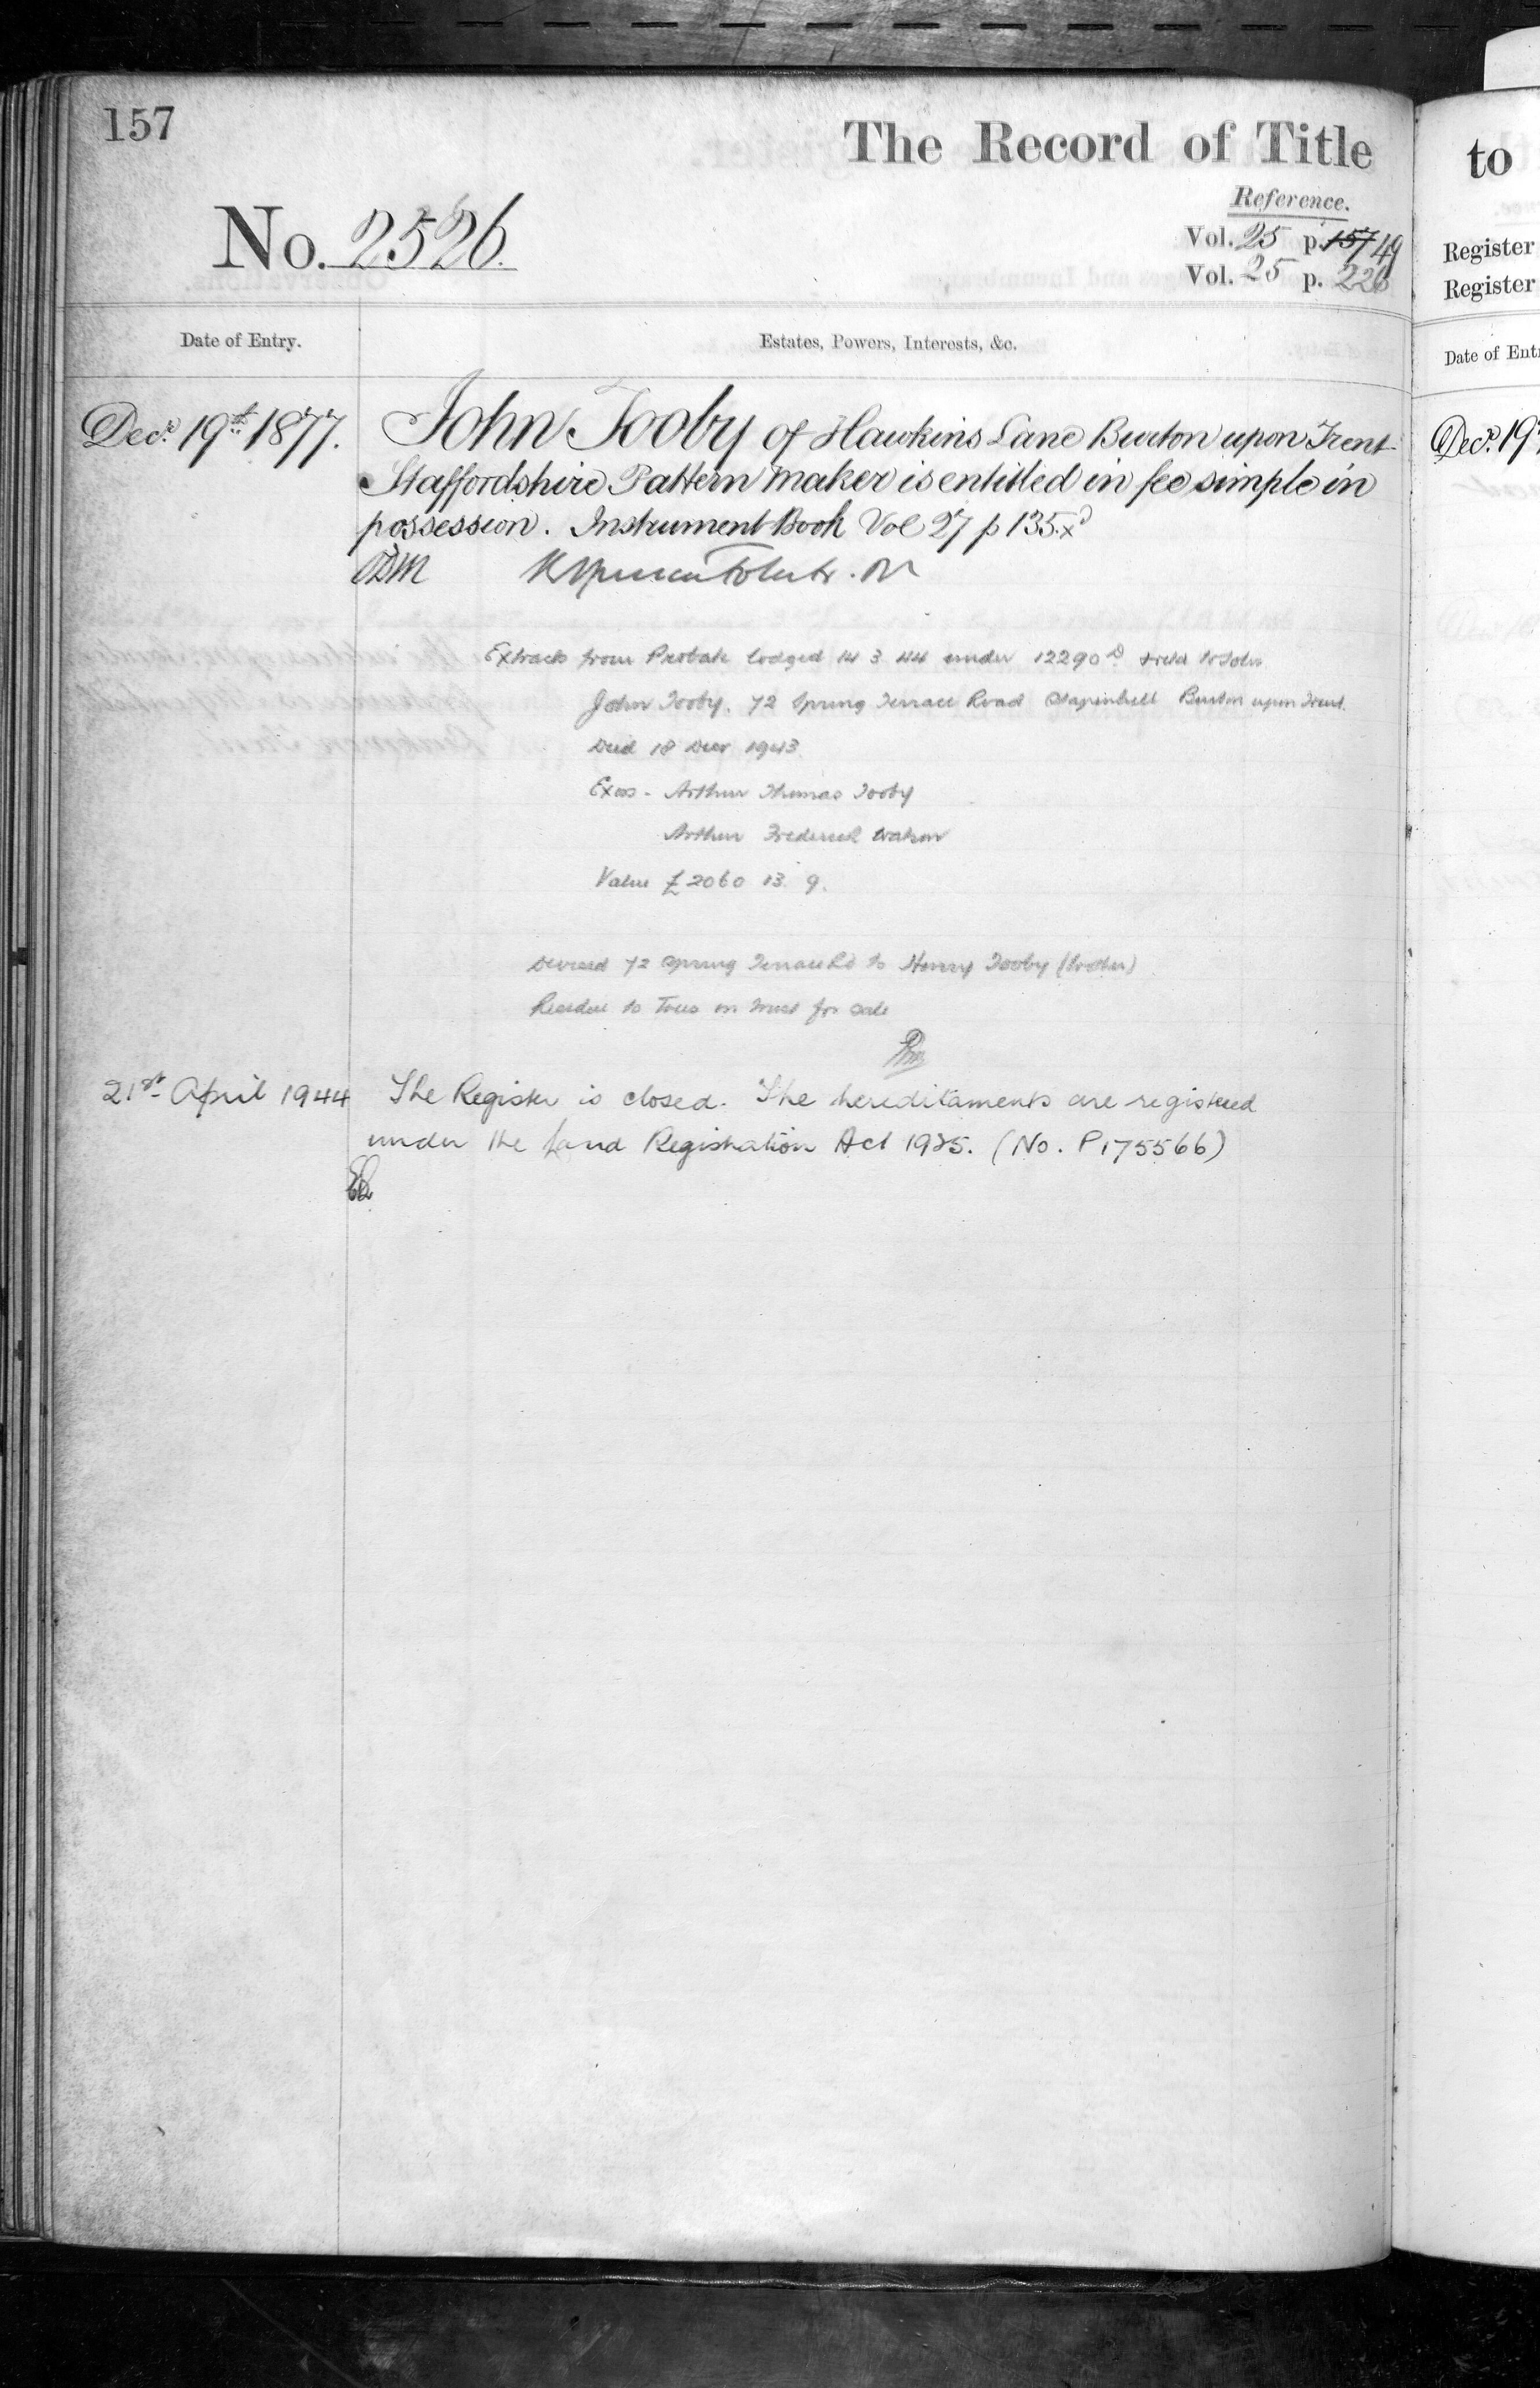 157
The Record of Title
Reference.
No. 2526.
Vol. 25 p. 157 49
Vol. 25 p. 226
Date of Entry.
Estates, Powers, Interests, &c.
Decr. 19th 1877.
John Tooby of Hawkins Lane Burton upon Trent
Staffordshire Pattern Maker is entitled in fee simple in
possession. Instrument Book Vol 27 p 135.
Extracts from Probate lodged 14 3 44 under 12290
John Tooby. 72 Spring Terrace Road Stapenhill Burton upon Trent.
Died 18 Decr 1943.
Exors - Arthur Thomas Tooby
Arthur Frederick Watson
Value £2060 13. 9.
Devised 72 Spring Terrace Rd to Henry Tooby (brother)
Residue to Trees on trust for sale
21st April 1944
The Register is closed. The hereditaments are registered
under the Land Registration Act 1925. (No. P175566)
to
Register
Register
Date of Ent
Decr. 19